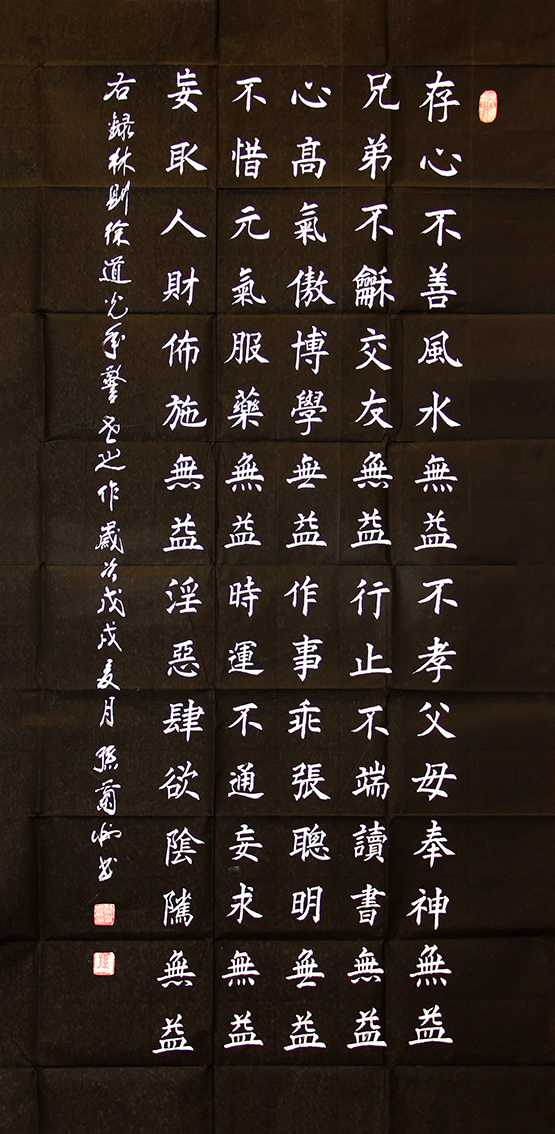 存心不善風水無益不孝父母奉神無益
兄弟不龢交友無益行止不端讀書無益
心高氣傲博學無益作事乖張聰明無益
不惜元氣服藥無益時運不通妄求無益
妄取人財佈施無益淫惡肆欲陰騭無益
右録林則徐道光年警世之作歲次戊戌夏月孫蘭